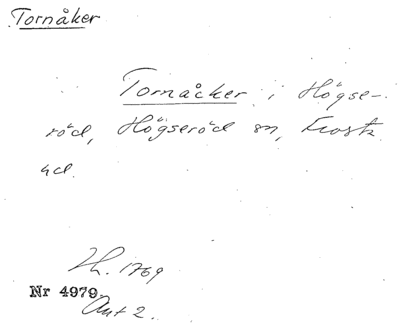 Tornåker
Tornåcker i Högse-
röd, Högseröd sn, Frosta
hd.
Lh. 1769
Nr 4979.
Akt 2.